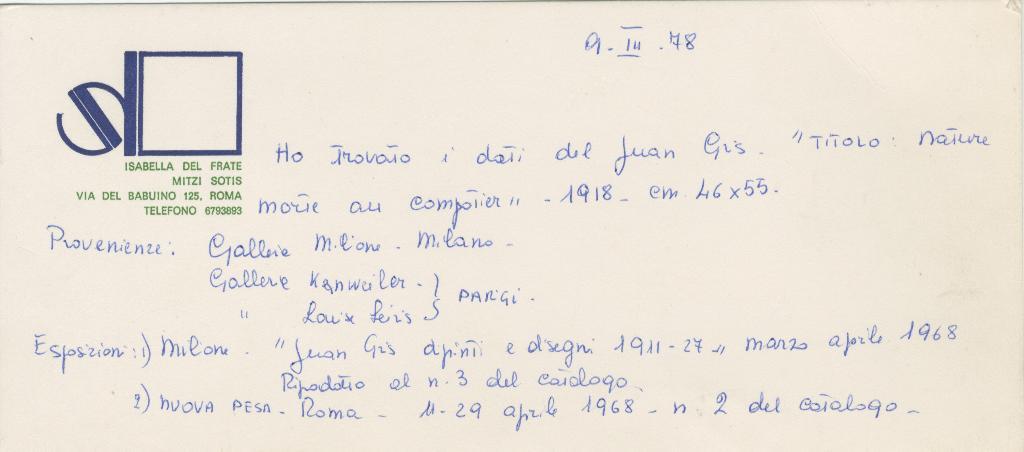 9 - III - 78
ISABELLA DEL FRATE
MITZI SOTIS
VIA DEL BABUINO 125, ROMA
TELEFONO 6793893
Ho trovato i dati del Juan Gris. "TITOLO: Nature
morte au compotier" - 1918 - cm. 46x55.
Provenienze: Galleria Milione - Milano -
Gallerie Kanweiler - } PARIGI.
" Louise Leiris
Esposizioni: 1) Milione. "Juan Gris dipinti e disegni 1911-27" marzo aprile 1968
Riprodotto al n. 3 del catalogo.
2) NUOVA PESA - Roma - 11-29 aprile 1968 - n 2 del catalogo -